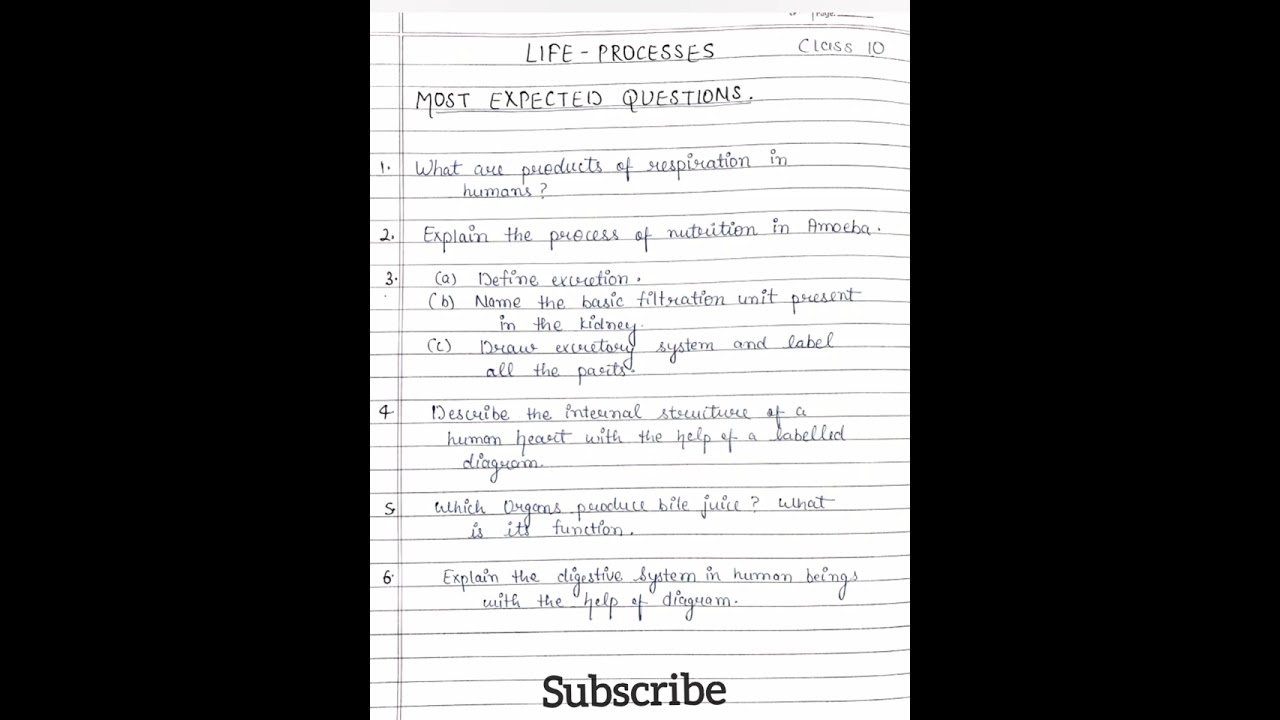 Page.
LIFE - PROCESSES Class 10
MOST EXPECTED QUESTIONS.
1. What are products of respiration in
humans?
2. Explain the process of nutrition in Amoeba.
3. (a) Define excretion.
(b) Name the basic filtration unit present
in the kidney.
(c) Draw excretory system and label
all the parts.
4 Describe the internal structure of a
human heart with the help of a labelled
diagram.
5 Which Organs produce bile juice? What
is its function.
6. Explain the digestive system in human beings
with the help of diagram.
Subscribe